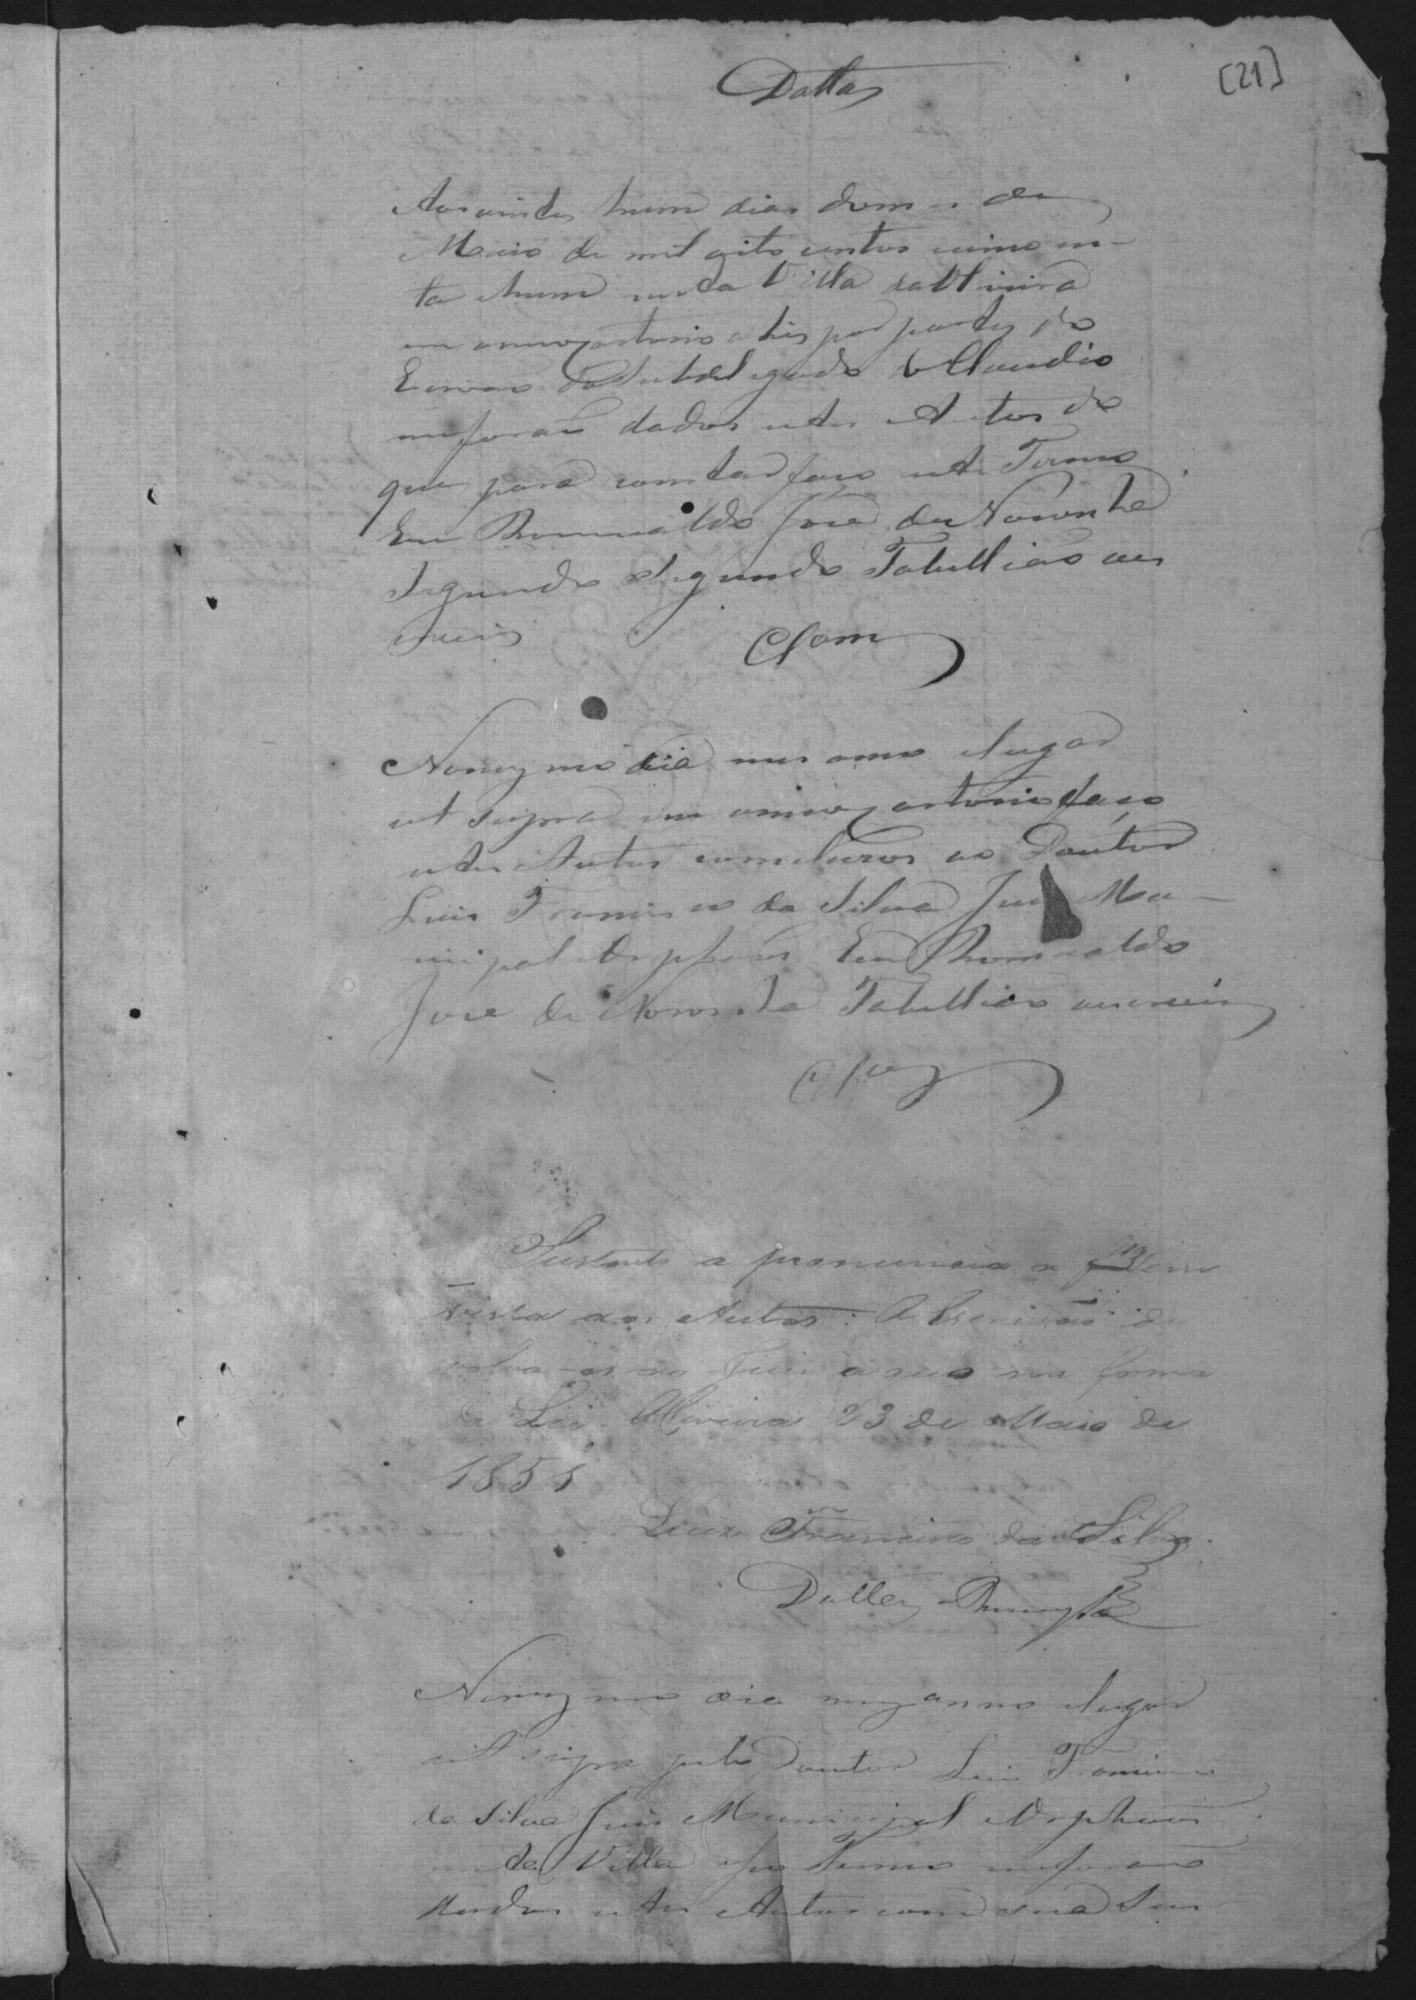 [21]
Datta
Aos vinte hum dias do mes de
Maio de mil oito centos cincoen-
ta hum nesta Villa da Oliveira
em meu cartorio ahi por parte do
Escrivão do Subdelegado Claudio
me forão dados estes Autos do
que para constar faço este Termo
Eu Romualdo José de Noronha
Segundo Segundo Tabellião que
escrevi Clsam
No mesmo dia mes anno e lugar
ut supra em meu cartorio faço
estes Autos conclusos ao Doutor
Luis Francisco da Silva Juis Mu-
nicipal e Orphãos Eu Romualdo
José de Noronha Tabellião que escrevi
Clsos
Sustento a pronuncia a f em
vista dos Autos: O Escrivão de
volva-os ao Juis a quo na forma
da Lei. Oliveira 23 de Maio de
1851
Luiz Francisco da Silva
Datta
No mesmo dia mes anno e lugar
ut supra pelo Doutor Luis Francisco
da Silva Juis Municipal e Orphãos
desta Villa e seu Termo me forão
dados estes Autos com sua Sen